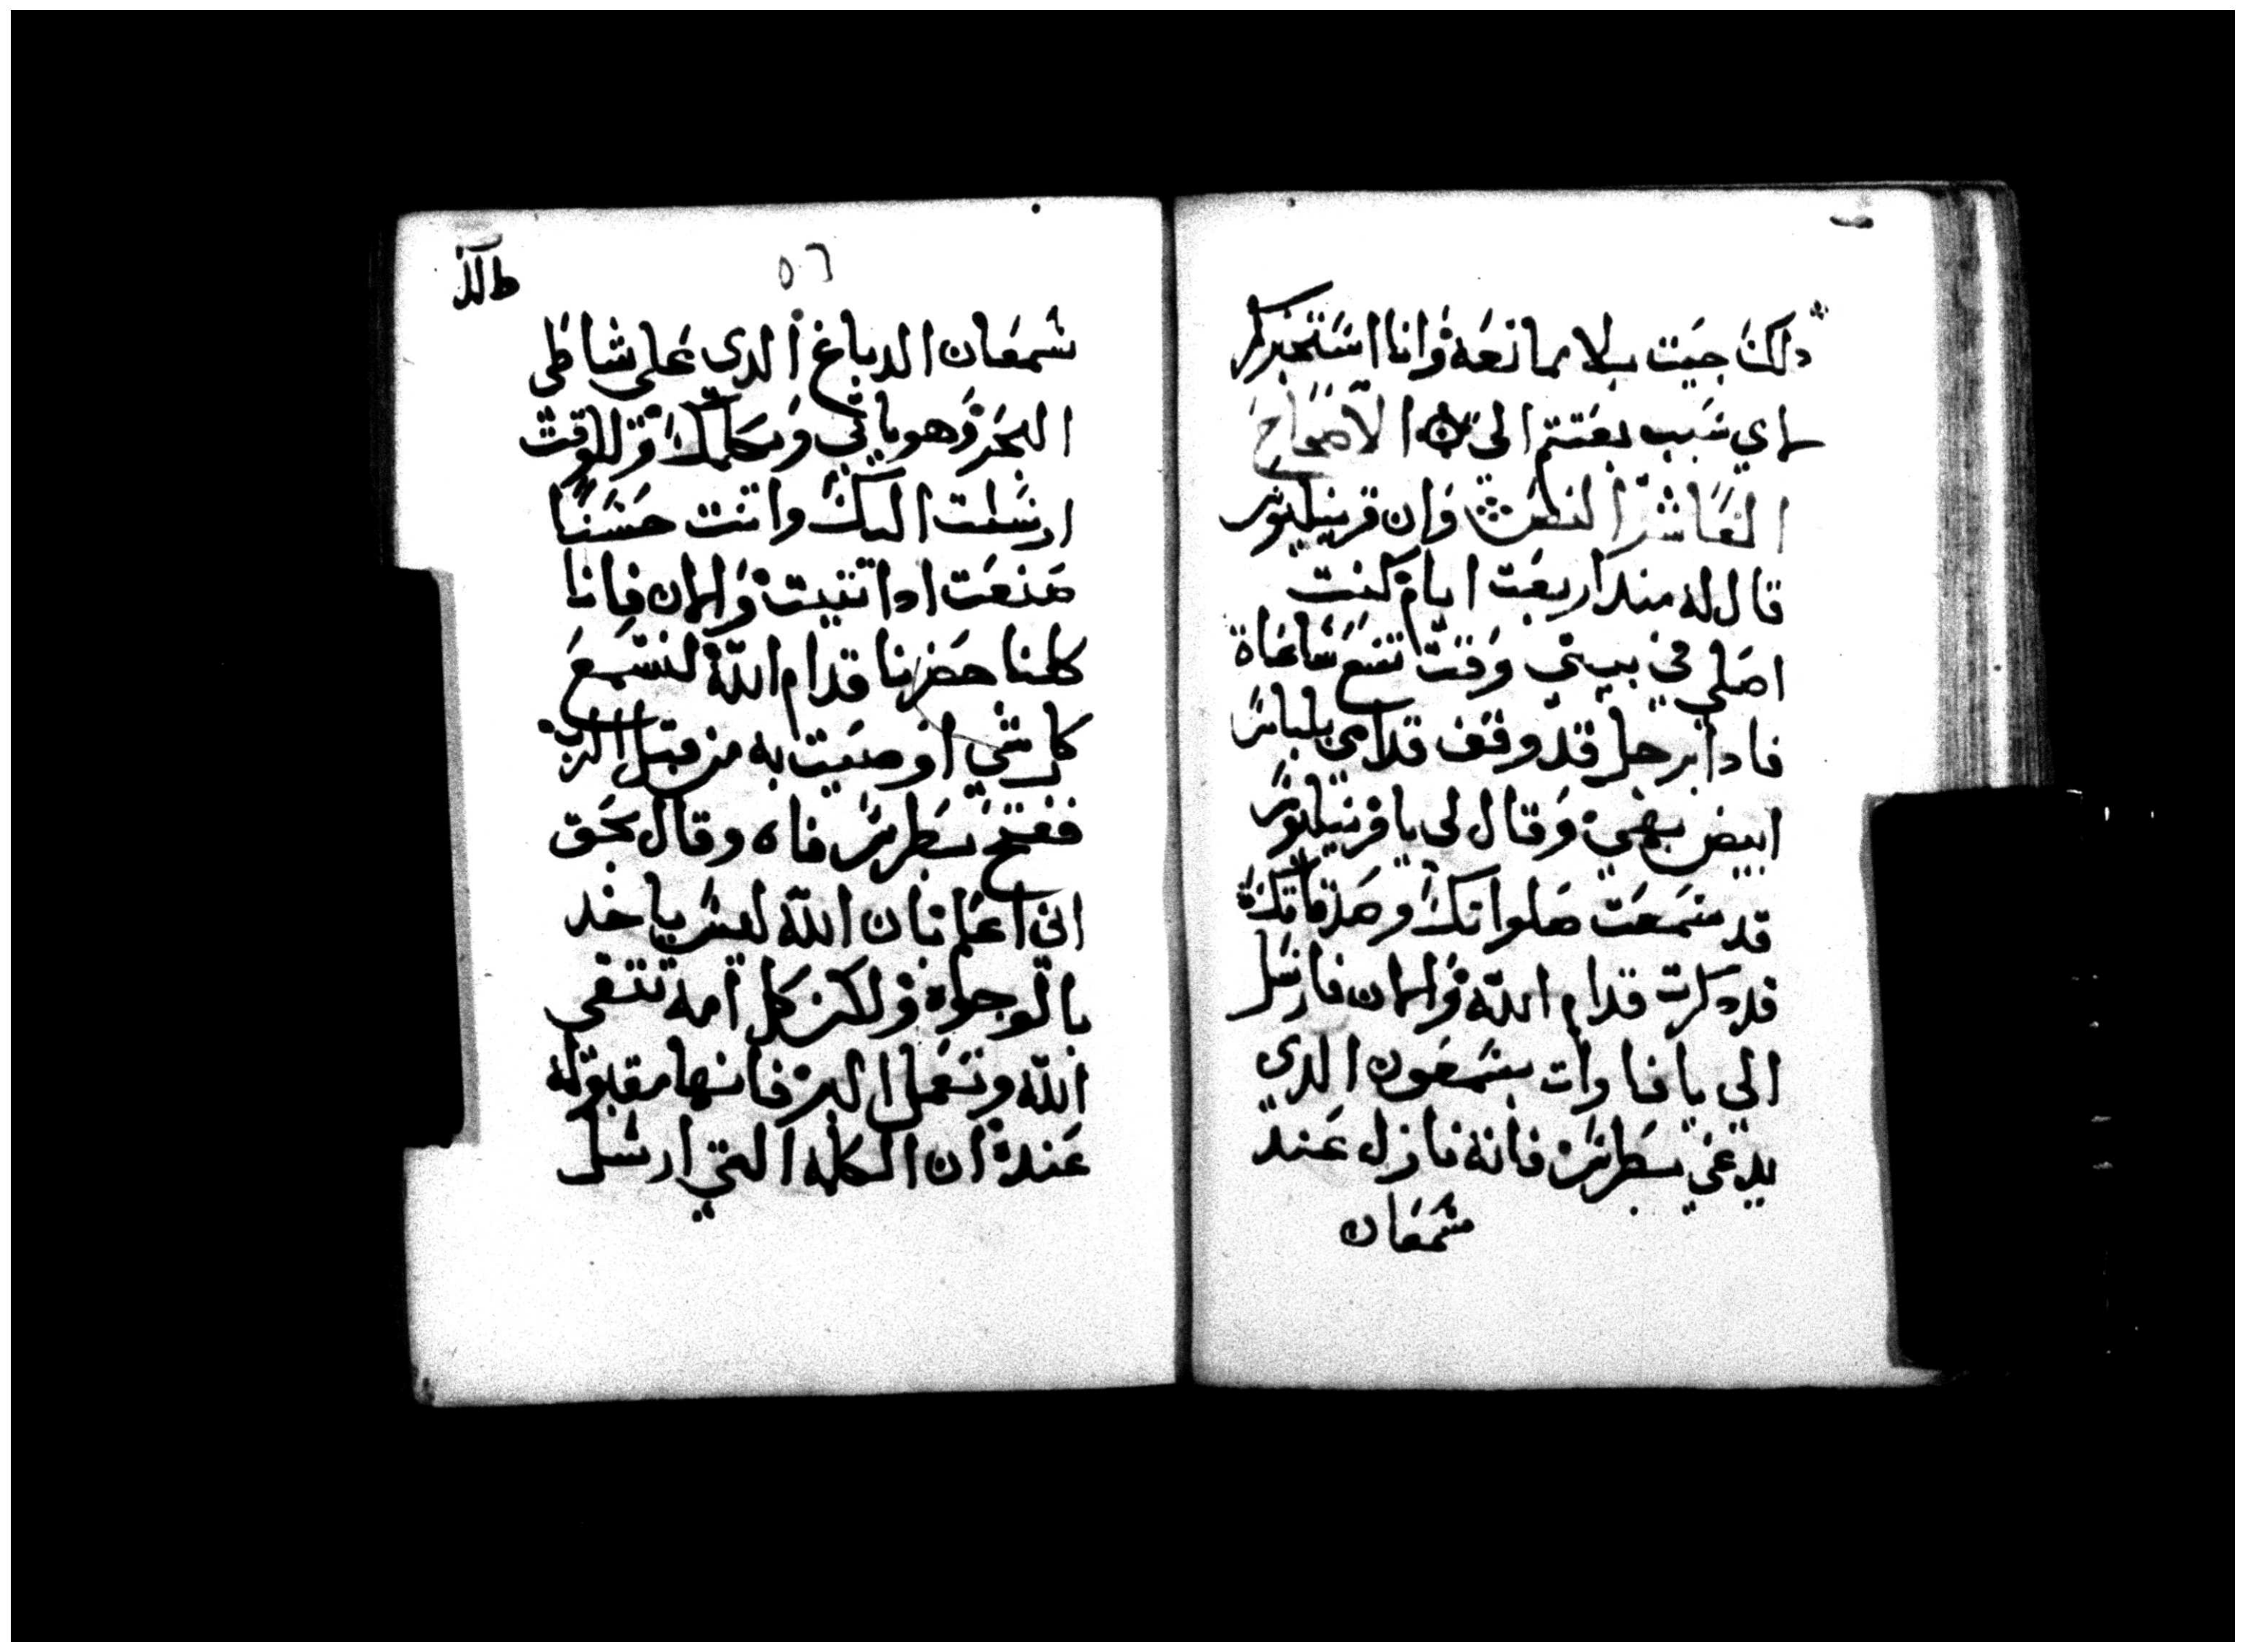 دلك جيت بلا ممانعة وانا استخبركم
لاي سبب بعتتم الي الاصحاح
العاشر النطس وان قرنيليوس
قال له مند اربعت ايام كنت
اصلي في بيتي وقت تسع ساعاة
فادا برجل قد وقف قدامي بلباس
ابيض بهي وقال لي يا قرنيليوس
قد سمعت صلواتك وصدقاتك
قد دكرت قدام الله والان فارسل
الي يافا وات بشمعون الدي
يدعي بطرس فانه نازل عند
شمعان
٥٦
شمعان الدباغ الدي علي شاطي
البحر وهو ياتي ويكلمك وللوقت
ارسلت اليك وانت حسنا
صنعت ادا تيت والان فانا
كلنا حضرنا قدام الله لنسمع
كل شي اوصيت به من قبل الرب
ففتح بطرس فاه وقال بحق
اني اعلم بان الله ليس ياخد
بالوجوه ولكن كل امة تتقي
الله وتعمل البر فانها مقبولة
عنده ان الكلمة التي ارسل